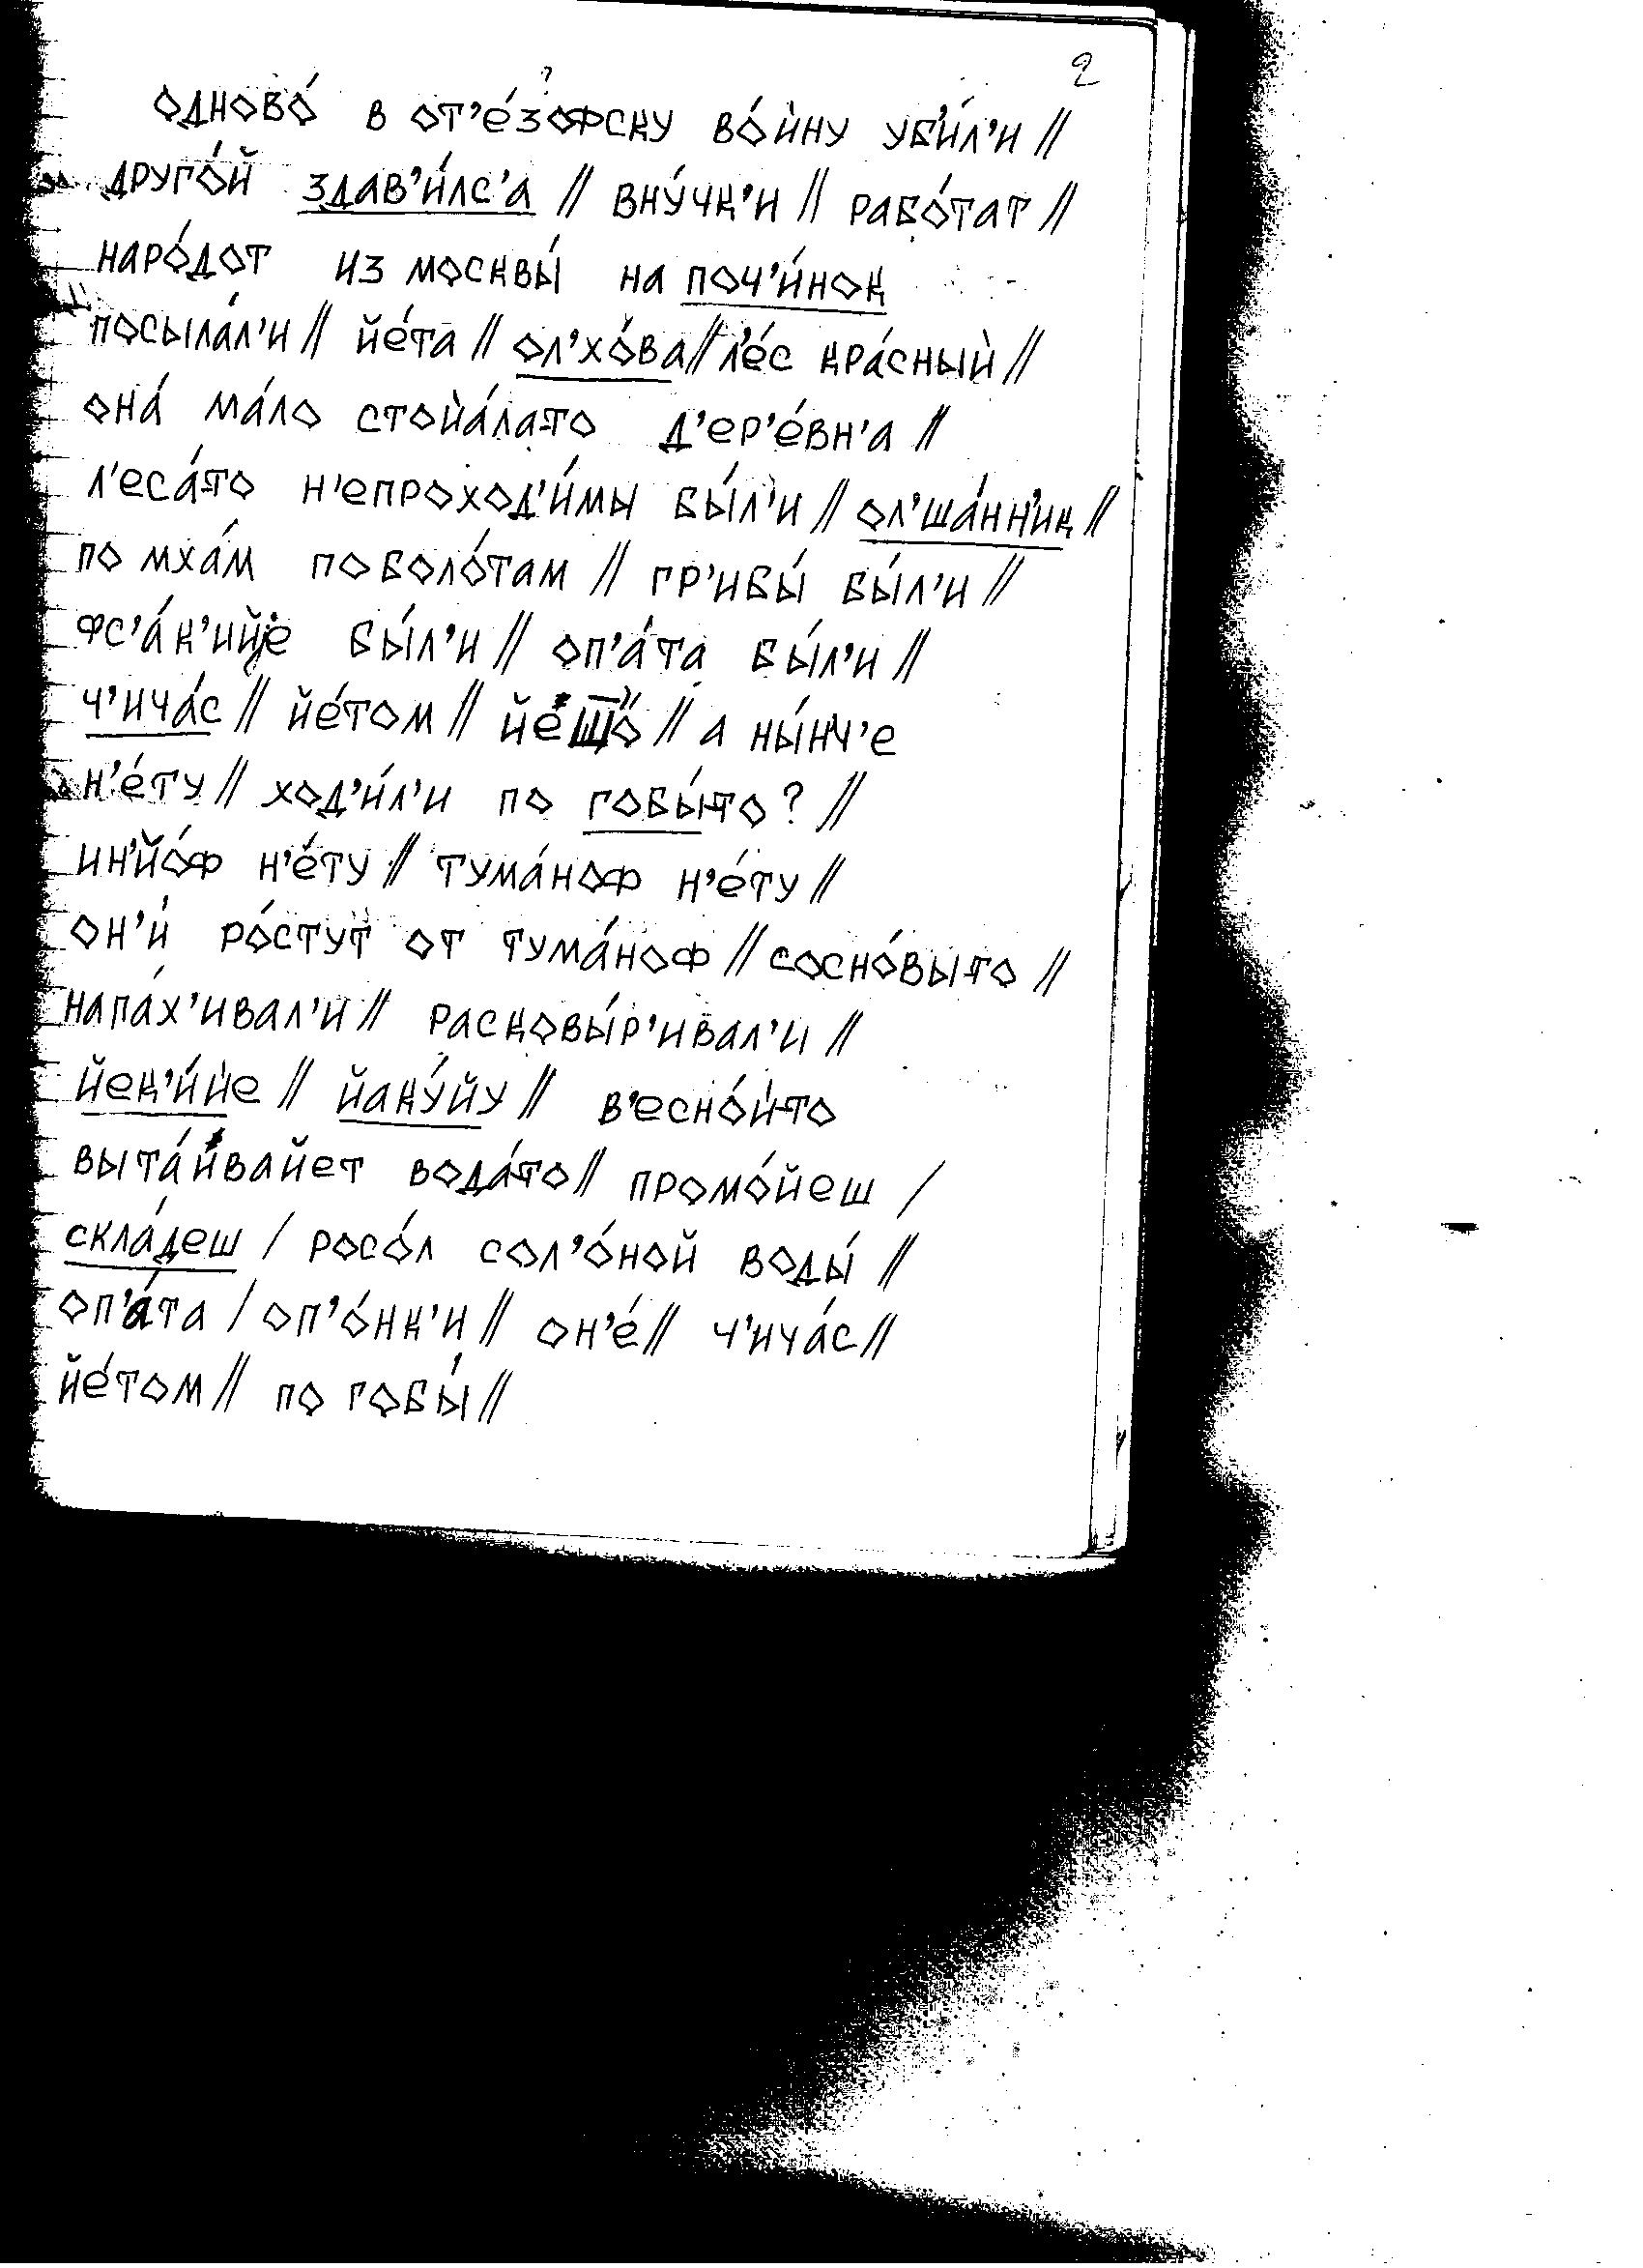 2
одново́ в от'е́зофску во́йну уби́л'и //
друго́й здав'и́лс'а // вну́чк'и // рабо́тат //
наро́дот из москвы́ на поч'и́нок
посыла́л'и // йе́та // ол'хо́ва // л'е́с кра́сный //
она́ ма́ло стойа́ла-то д'ер'е́вн'а //
л'еса́-то н'епроход'и́мы бы́л'и // ол'ша́нн'ик //
по мха́м по боло́там // гр'ибы́ бы́л'и //
фс'а́к'ийе бы́л'и // оп'а́та бы́л'и //
ч'ича́с // йе́том // йещо́ // а ны́нч'е
н'е́ту // ход'и́л'и по гобы́-то? //
ин'йо́ф н'е́ту // тума́ноф н'е́ту //
он'и́ ро́стут от тума́ноф // сосно́вы-то //
напа́х'ивал'и // расковы́р'ивал'и //
йек'и́йе // йаку́йу // в'есно́й-то
выта́ивайет вода́-то // промо́йеш /
скла́деш / росо́л сол'о́ной воды́ //
оп'а́та / оп'о́нк'и // он'е́ // ч'ича́с //
йе́том // по гобы́ //